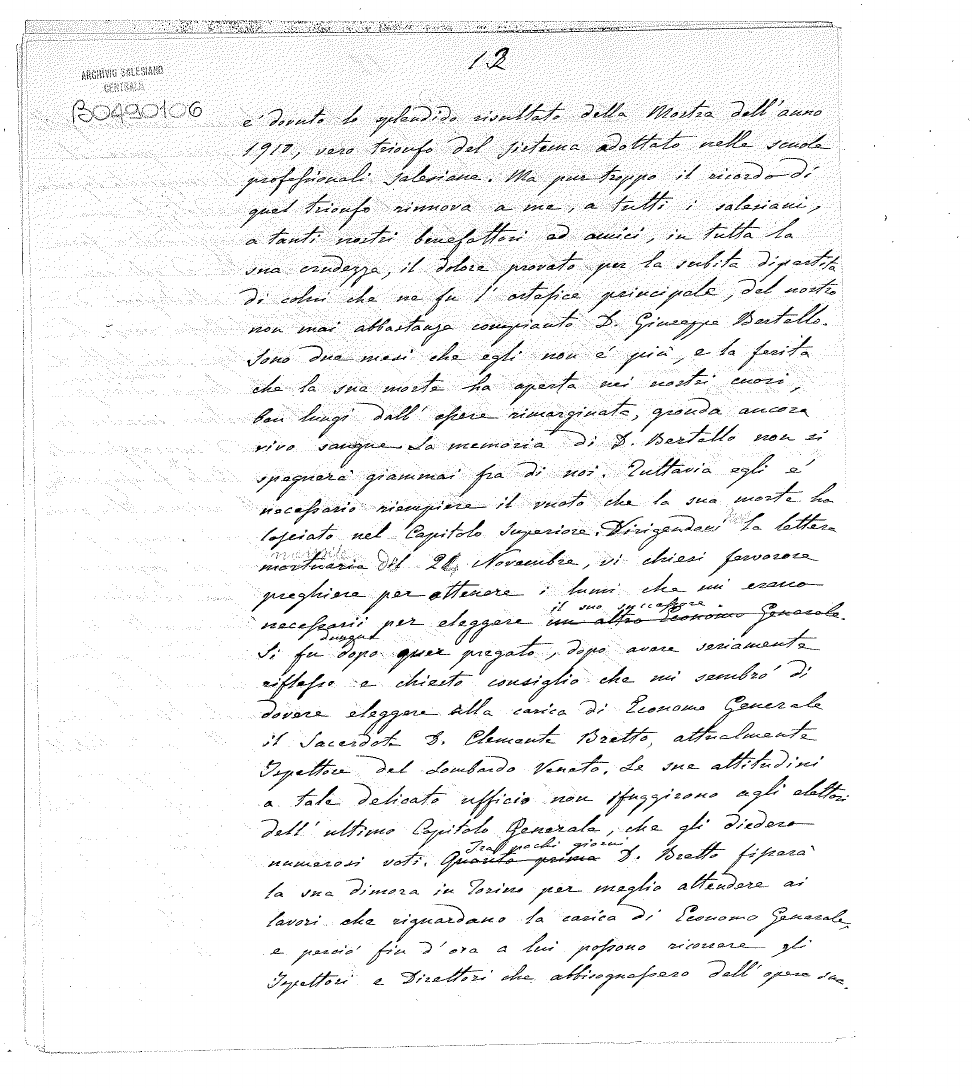 12
ARCHIVIO SALESIANO
CENTRALE
B0490106
è dovuto lo splendido risultato della Mostra dell'anno
1910, vero trionfo del sistema adottato nelle scuole
professionali Salesiane. Ma pur troppo il ricordo di
quel trionfo rinnova a me, a tutti i salesiani,
a tanti nostri benefattori ad amici, in tutta la
sua crudezza, il dolore provato per la subita dipartita
di colui che ne fu l'artefice principale, del nostro
non mai abbastanza compianto D. Giuseppe Bertello.
Sono due mesi che egli non è più, e la ferita
che la sua morte ha aperta nei nostri cuori,
ben lungi dall'essere rimarginata, gronda ancora
vivo sangue. La memoria di D. Bertello non si
spegnerà giammai fra di noi. Tuttavia egli è
necessario riempiere il vuoto che la sua morte ha
lasciato nel Capitolo Superiore. Dirigendovi la lettera
mensile
mortuaria del 21 Novembre, vi chiesi fervorose
preghiere per ottenere i lumi che mi erano
il suo successore.
necessarii per eleggere un altro Economo Generale.
dunque
Si fu dopo aver pregato, dopo avere seriamente
riflesso e chiesto consiglio che mi sembrò di
dovere eleggere alla carica di Economo Generale
il Sacerdote D. Clemente Bretto, attualmente
Ispettore del Lombardo Veneto. Le sue attitudini
a tale delicato ufficio non sfuggirono agli elettori
dell'ultimo Capitolo Generale, che gli diedero
Tra pochi giorni
numerosi voti. Quanto prima D. Bretto fisserà
la sua dimora in Torino per meglio attendere ai
lavori che riguardano la carica di Economo Generale,
e perciò fin d'ora a lui possono ricorrere gli
Ispettori e Direttori che abbisognassero dell'opera sua.